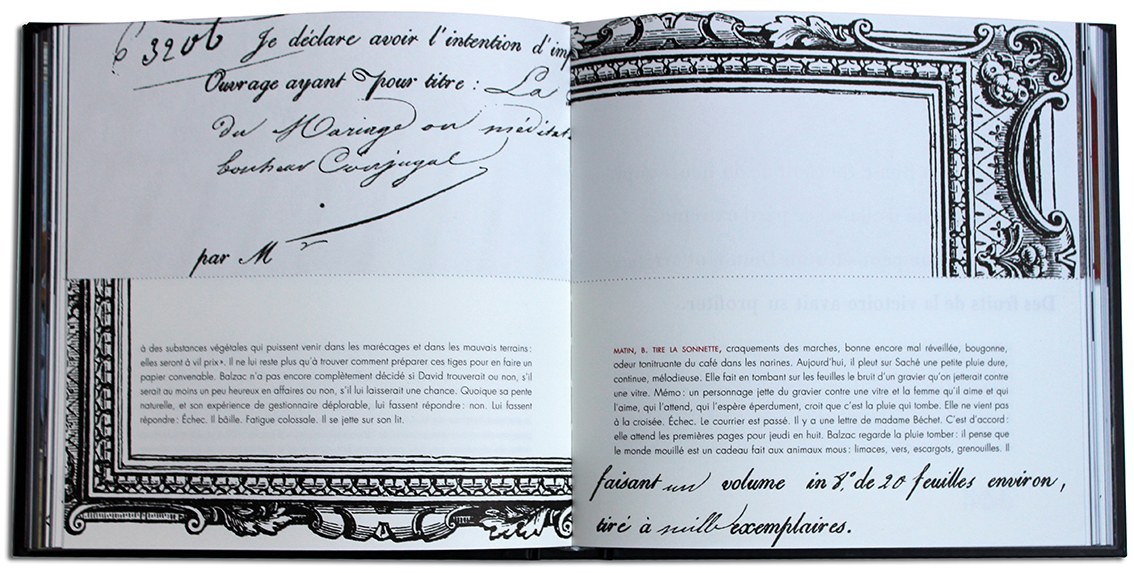 6 3206 Je déclare avoir l'intention d'imp
Ouvrage ayant pour titre : La
du Mariage ou méditat
bonheur Conjugal
par M
à des substances végétales qui puissent venir dans les marécages et dans les mauvais terrains:
elles seront à vil prix ». Il ne lui reste plus qu'à trouver comment préparer ces tiges pour en faire un
papier convenable. Balzac n'a pas encore complètement décidé si David trouverait ou non, s'il
serait au moins un peu heureux en affaires ou non, s'il lui laisserait une chance. Quoique sa pente
naturelle, et son expérience de gestionnaire déplorable, lui fassent répondre : non. Lui fassent
répondre : Échec. Il bâille. Fatigue colossale. Il se jette sur son lit.
Des fruits de la victoire avait su profiter.
MATIN, B. TIRE LA SONNETTE, craquements des marches, bonne encore mal réveillée, bougonne,
odeur tonitruante du café dans les narines. Aujourd'hui, il pleut sur Saché une petite pluie dure,
continue, mélodieuse. Elle fait en tombant sur les feuilles le bruit d'un gravier qu'on jetterait contre
une vitre. Mémo : un personnage jette du gravier contre une vitre et la femme qu'il aime et qui
l'aime, qui l'attend, qui l'espère éperdument, croit que c'est la pluie qui tombe. Elle ne vient pas
à la croisée. Échec. Le courrier est passé. Il y a une lettre de madame Béchet. C'est d'accord :
elle attend les premières pages pour jeudi en huit. Balzac regarde la pluie tomber : il pense que
le monde mouillé est un cadeau fait aux animaux mous : limaces, vers, escargots, grenouilles. Il
faisant un volume in 8.° de 20 feuilles environ,
tiré à mille exemplaires.